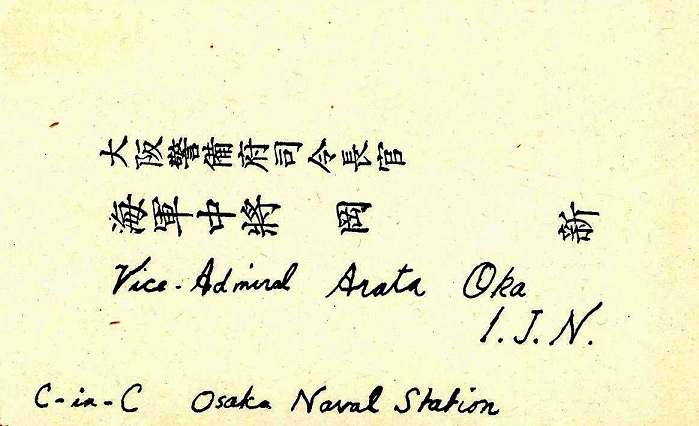 大阪警備府司令長官
海軍中將 岡 新
Vice-Admiral Arata Oka
I.J.N.
C-in-C Osaka Naval Station